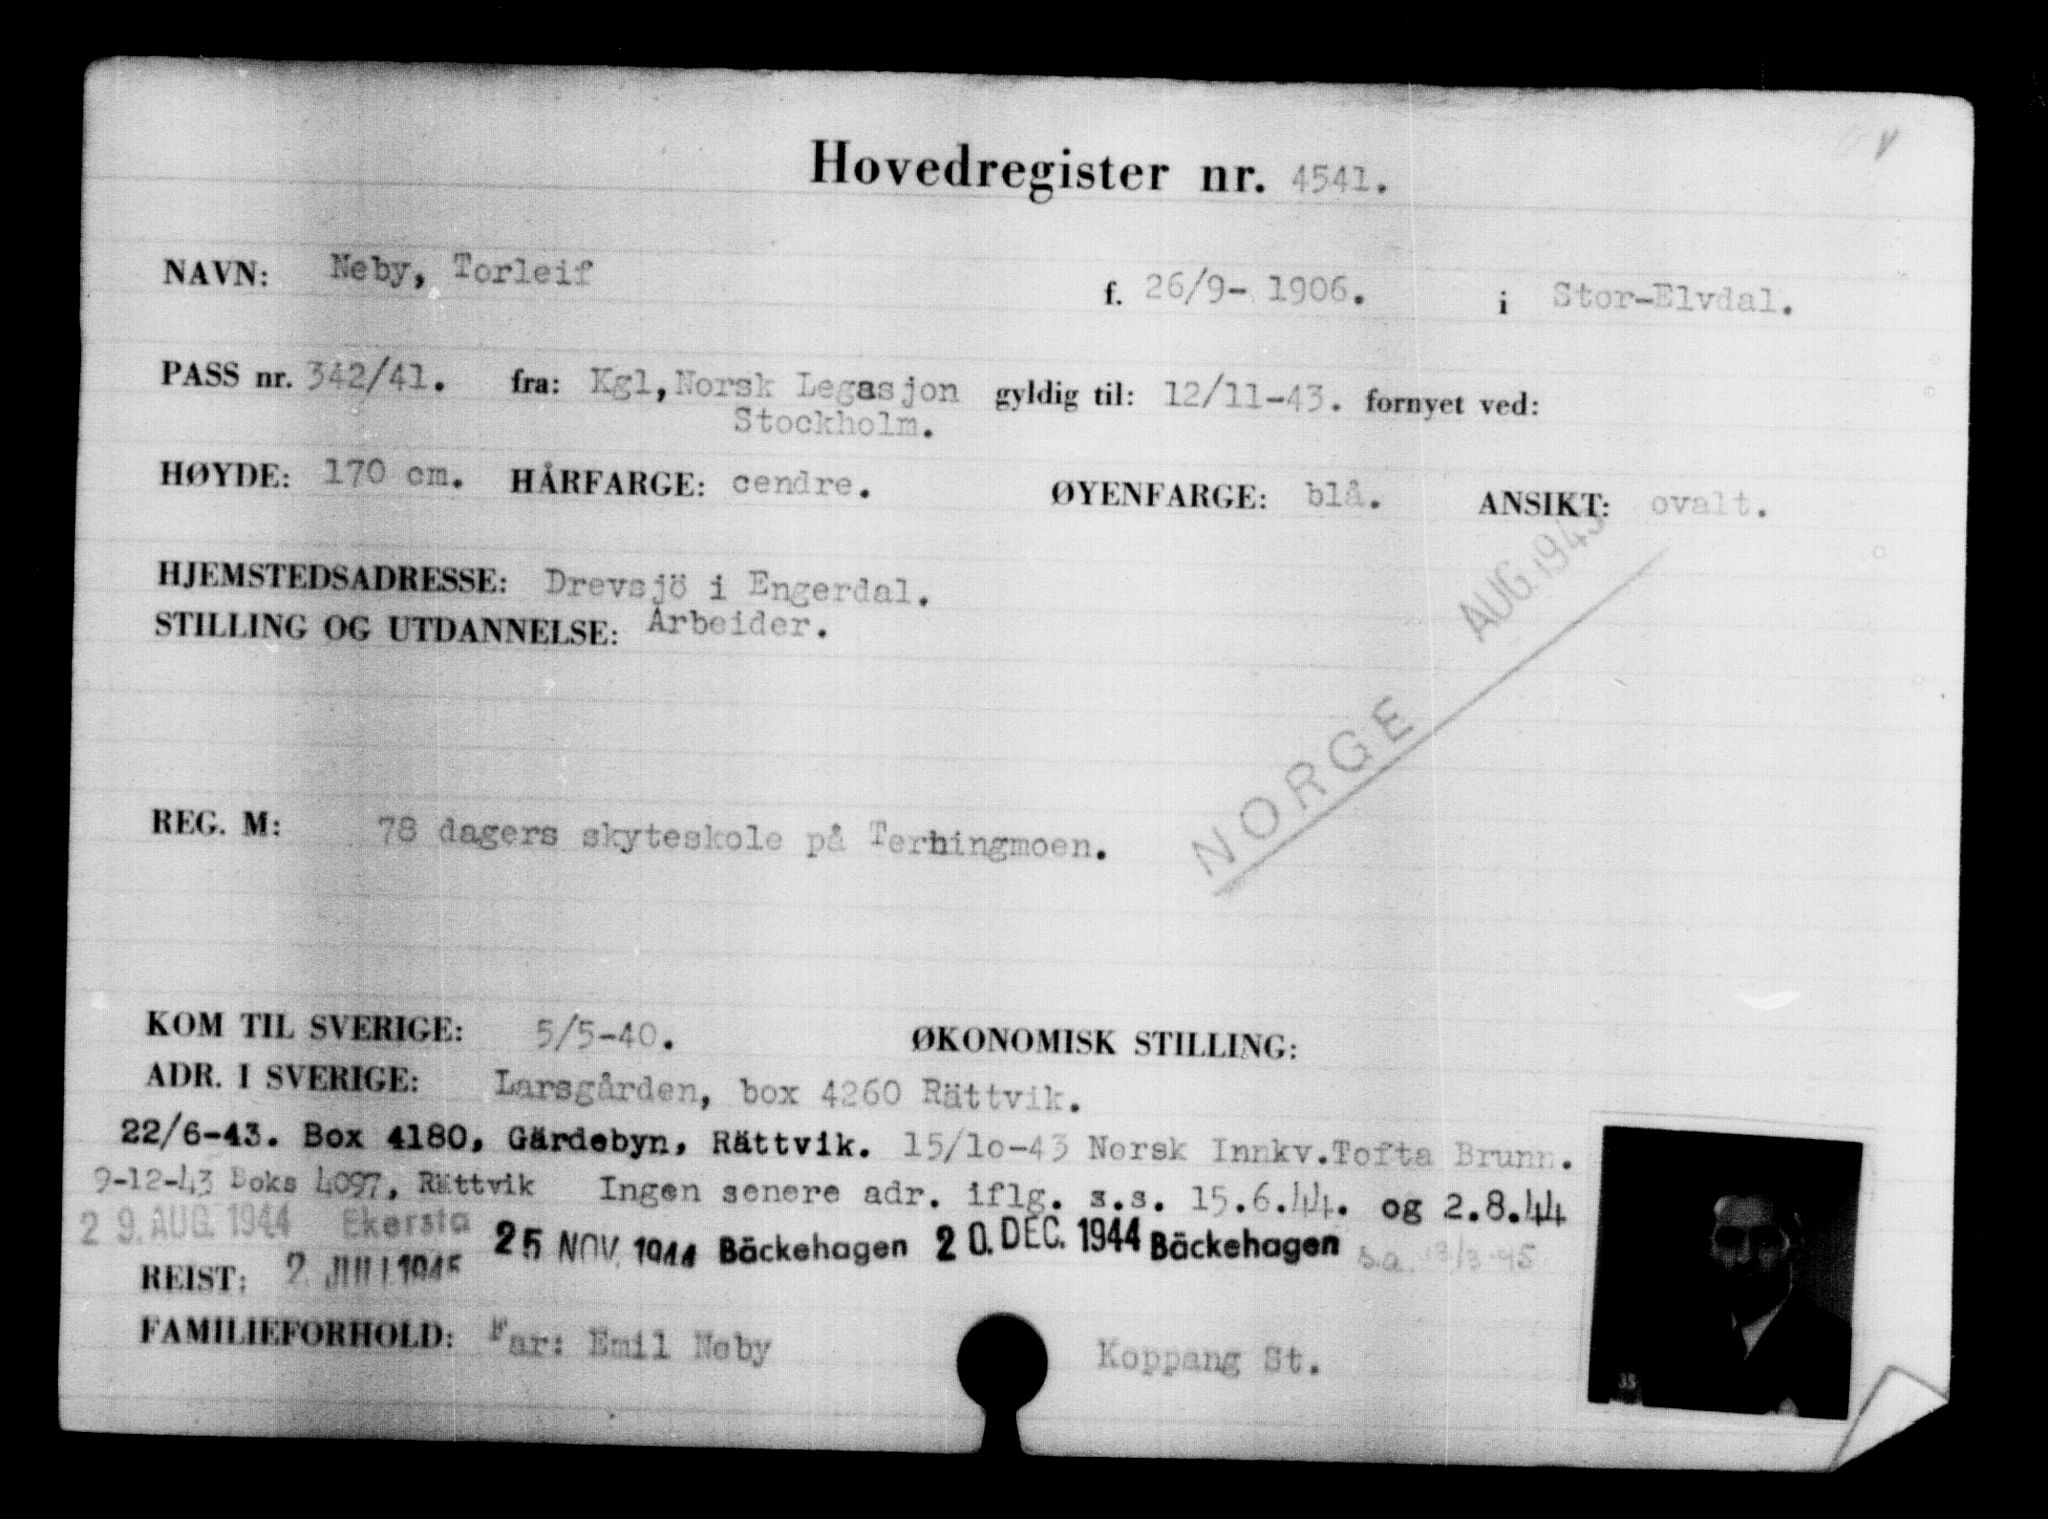 Hovedregister nr. 4541.
NAVN: Neby, Torleif f. 26/9- 1906. i Stor-Elvdal.
PASS nr. 342/41. fra: Kgl, Norsk Legasjon gyldig til: 12/11-43. fornyet ved:
Stockholm.
HØYDE: 170 cm. HÅRFARGE: cendre. ØYENFARGE: blå. ANSIKT: ovalt.
HJEMSTEDSADRESSE: Drevsjö i Engerdal.
STILLING OG UTDANNELSE: Arbeider.
NORGE AUG. 1945
REG. M: 78 dagers skyteskole på Terningmoen.
KOM TIL SVERIGE: 5/5-40. ØKONOMISK STILLING:
ADR. I SVERIGE: Larsgården, box 4260 Rättvik.
22/6-43. Box 4180, Gärdebyn, Rättvik. 15/10-43 Norsk Innkv. Tofta Brunn.
9-12-43 Boks 4097, Rättvik Ingen senere adr. iflg. s.s. 15.6.44. og 2.8.44
29. AUG. 1944 Ekersta 25 NOV. 1944 Bäckehagen 20. DEC. 1944 Bäckehagen s.a.
REIST: 2 JULI 1945
FAMILIEFORHOLD: Far: Emil Neby Koppang St.
35